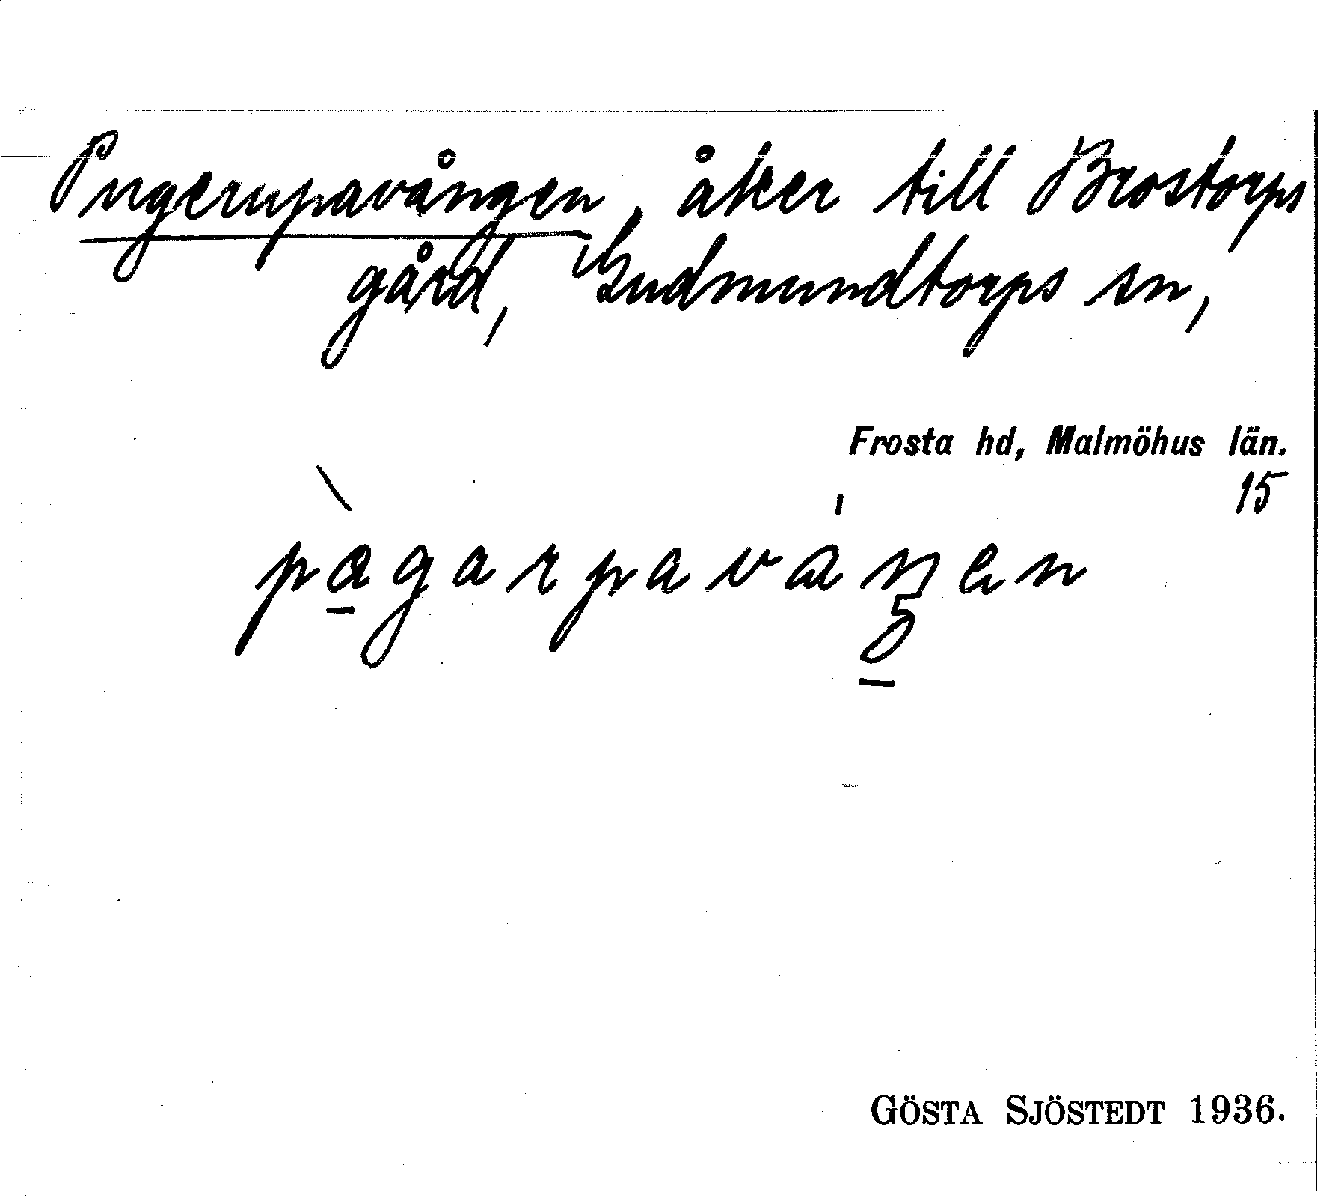 Pugerupavången, åker till Brostorps
gård, Gudmundtorps sn,
Frosta hd, Malmöhus län.
15
GÖSTA SJÖSTEDT 1936.